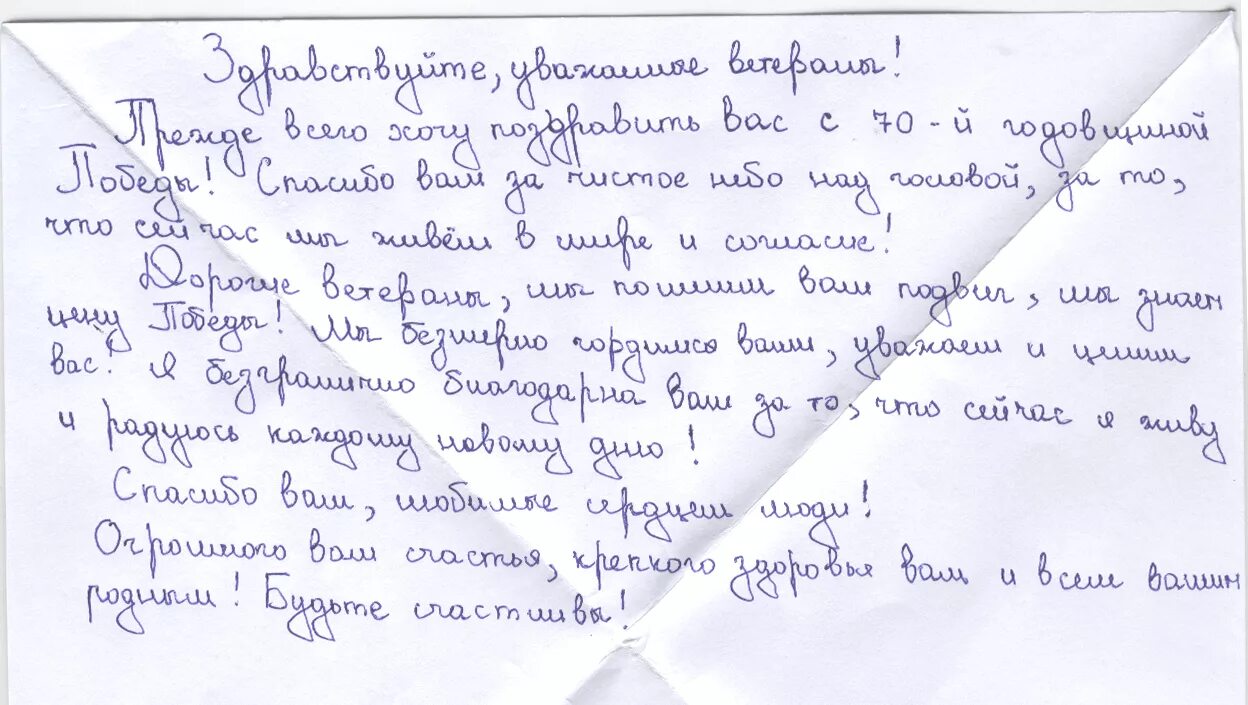 Здравствуйте, уважаемые ветераны!
Прежде всего хочу поздравить вас с 70-й годовщиной
Победы! Спасибо вам за чистое небо над головой, за то,
что сейчас мы живём в мире и согласие!
Дорогие ветераны, мы помним ваш подвиг, мы знаем
цену Победы! Мы безмерно гордимся вами, уважаем и ценим
вас! Я безгранично благодарна вам за то, что сейчас я живу
и радуюсь каждому новому дню!
Спасибо вам, любимые сердцем люди!
Огромного вам счастья, крепкого здоровья вам и всем вашим
родным! Будьте счастливы!